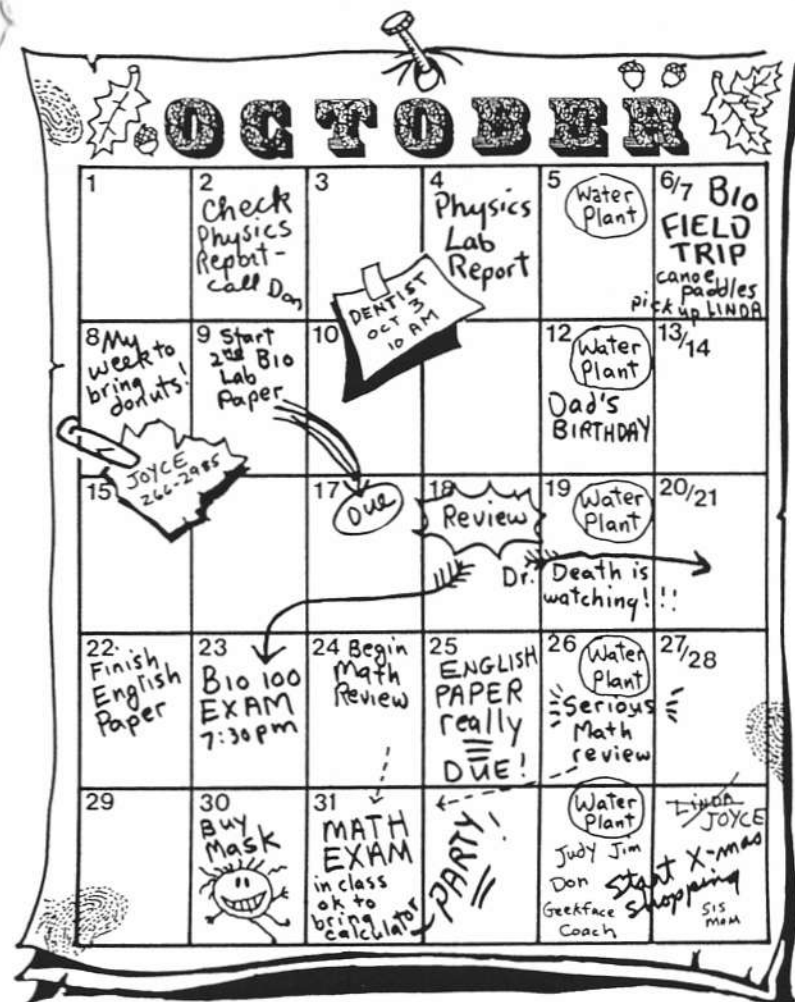 OCTOBER
1
2
Check
Physics
Report-
call Don
3
4
Physics
Lab
Report
5
Water
Plant
6/7 BIO
FIELD
TRIP
canoe
paddles
pick up LINDA
DENTIST
OCT 3
10 AM
8 My
week to
bring
donuts!
9 Start
2nd BIO
Lab
Paper
10
12
Water
Plant
Dad's
BIRTHDAY
13/14
JOYCE
266-2985
15
17
Due
18
Review
Dr.
19
Water
Plant
Death is
watching!!!
20/21
22
Finish
English
Paper
23
BIO 100
EXAM
7:30pm
24 Begin
Math
Review
25
ENGLISH
PAPER
really
DUE!
26
Water
Plant
Serious
Math
review
27/28
29
30
BUY
MASK
31
MATH
EXAM
in class
ok to
bring
calculator
PARTY!
Water
Plant
Judy Jim
Don
Geekface
Coach
LINDA
JOYCE
Start X-mas
shopping
SIS
MOM